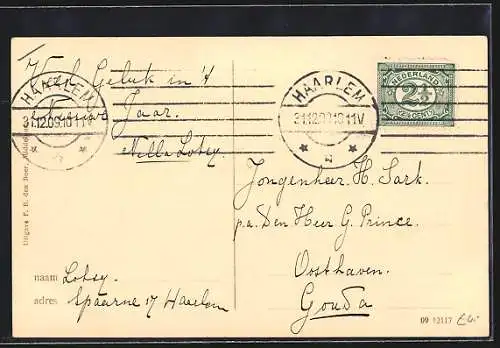 Veel Geluk in 't
Nieuwe Jaar.
Nella Lotsy
HAARLEM
31.12.09.10-11V
HAARLEM
31.12.09.10-11V
NEDERLAND
2½
2½ CENT
Jongenheer H. Sark.
p.a. Den Heer G. Prince.
Oosthaven.
Gouda
naam Lotsy.
adres Spaarne 17 Haarlem
Uitgave F. B. den Boer, Middelburg
09 12117